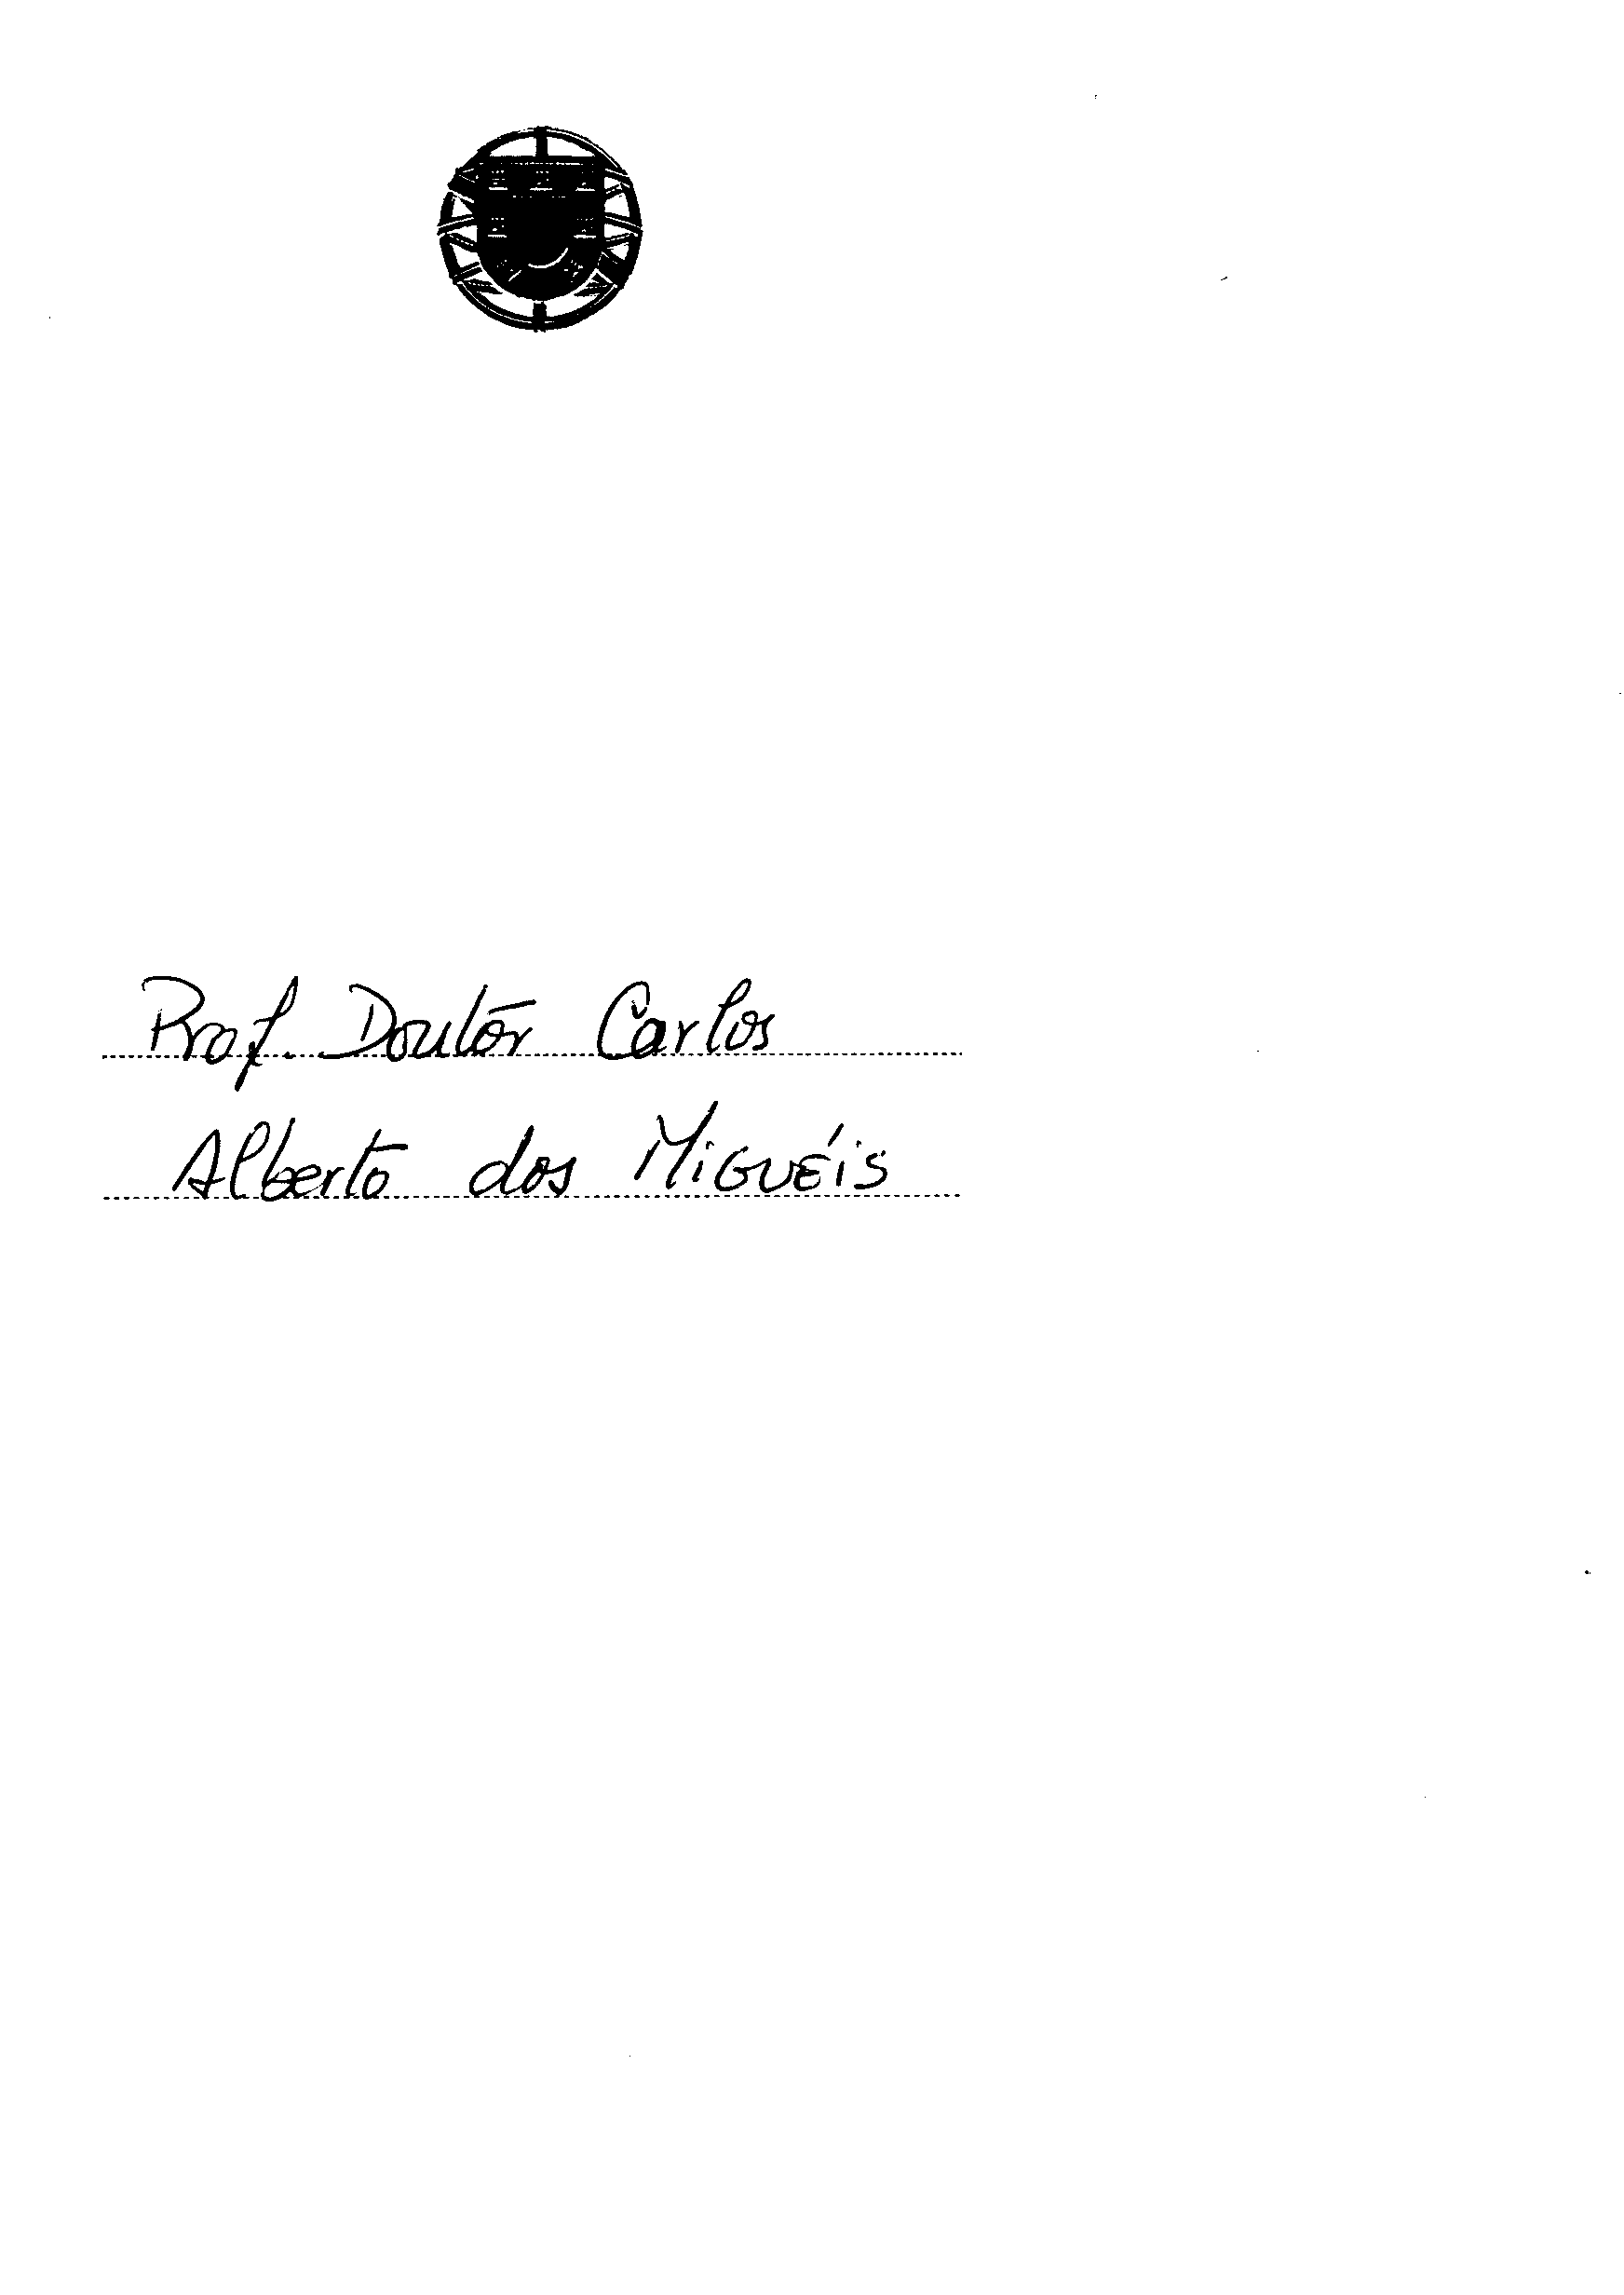 Prof. Doutor Carlos
Alberto dos Miguéis